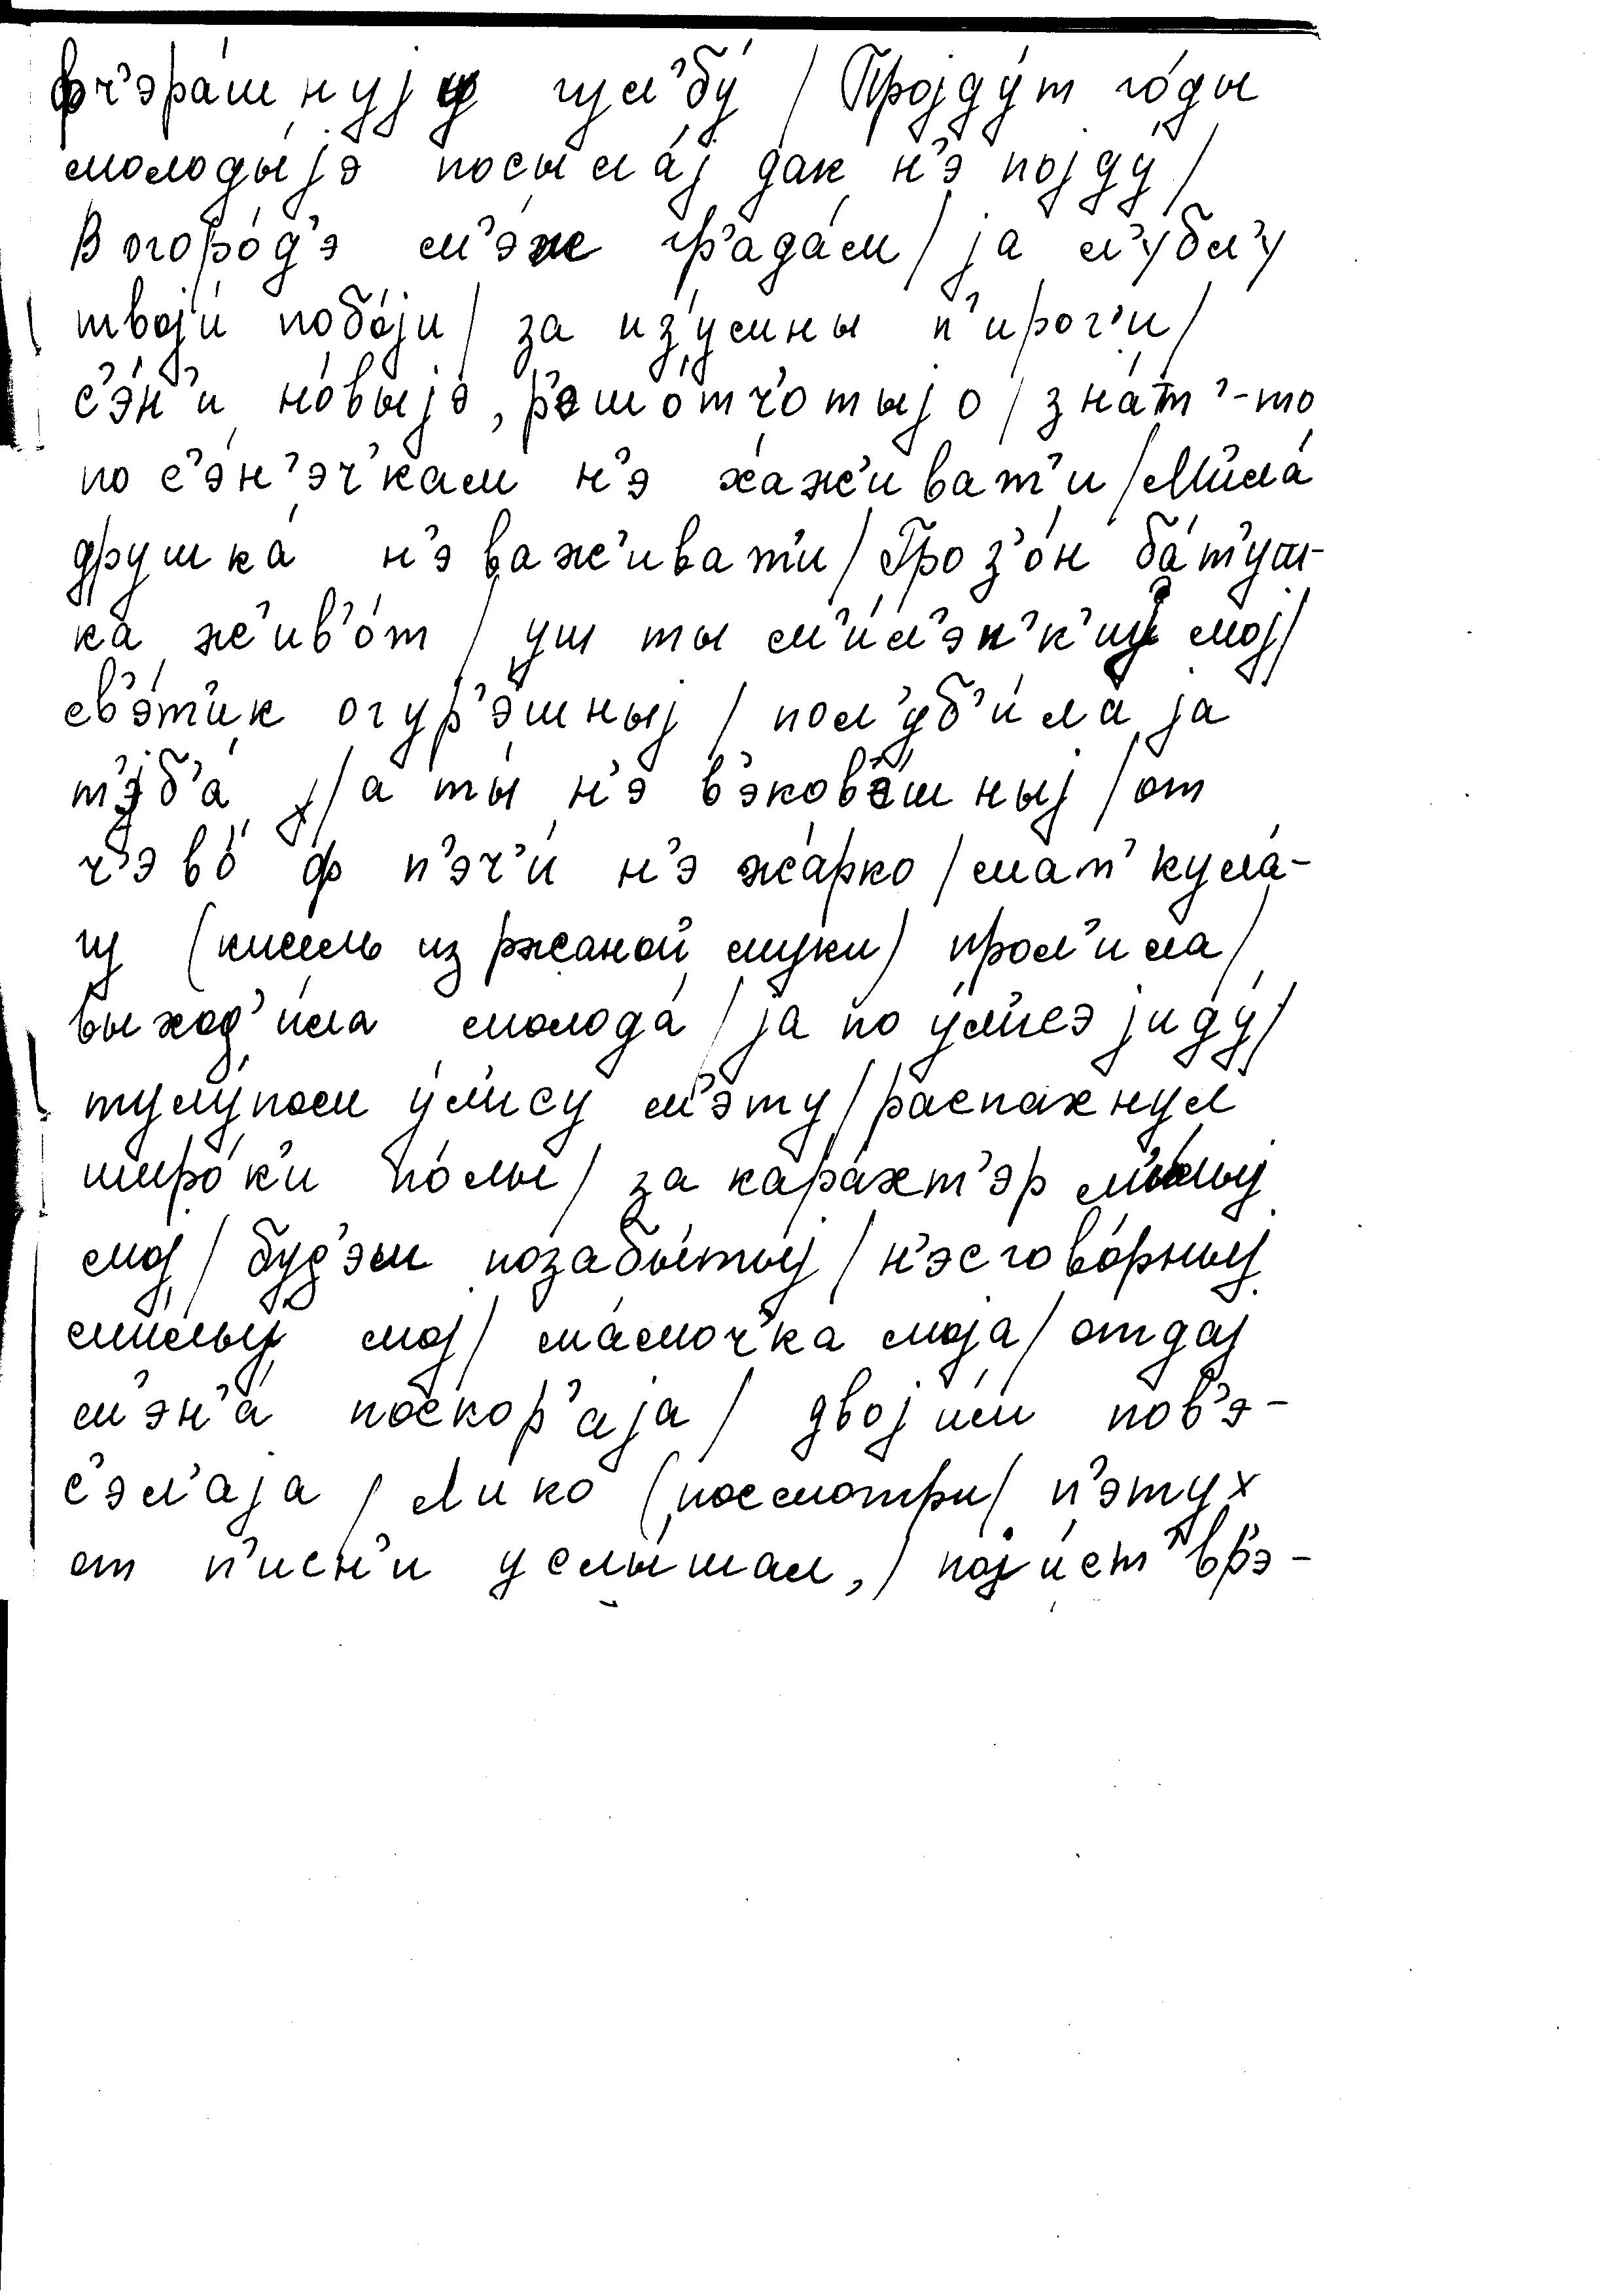 фч'эра́шнуjу гул'бу́ / Проjду́т го́ды
молоды́jэ посыла́j дак н'э поjду́ /
В огоро́д'э м'эж гр'ада́м / jа л'убл'у
твоjи́ побо́jи / за из'у́мны п'ирог'и /
с'э́н'и но́выjэ, р'эшо́тч'отыjо / зна́т'-то
по с'э́н'эч'кам н'э ха́ж'иват'и / М'ила́
друшка́ н'э ва́ж'иват'и / Гроз'о́н ба́т'уш-
ка ж'ив'о́т / уш ты м'и́л'эн'к'иj моj /
св'э́т'ик огур'э́шныj / пол'уб'и́ла jа
т'эб'а́ / а ты́ н'э в'эков'э́шныj / от
ч'эво́ ф п'эч'и́ н'э жа́рко / мат' кула́-
гу (кисель из ржаной муки) прол'ила /
выход'и́ла молода́ / jа по у́л'исэ jиду́ /
тулу́пом у́л'ису м'эту / распахнул
широ́к'и по́лы / за кара́хт'эр м'и́лыj
моj / буд'эш позабы́тыj / н'эсгово́рныj
м'и́лыj моj / ма́моч'ка моjа / отдаj
м'эн'а́ поскор'аjа / двоjи́м пов'э-
с'эл'аjа / Л'ико (посмотри) п'эту́х
от п'исн'и услы́шал, / поjи́ст вр'э-